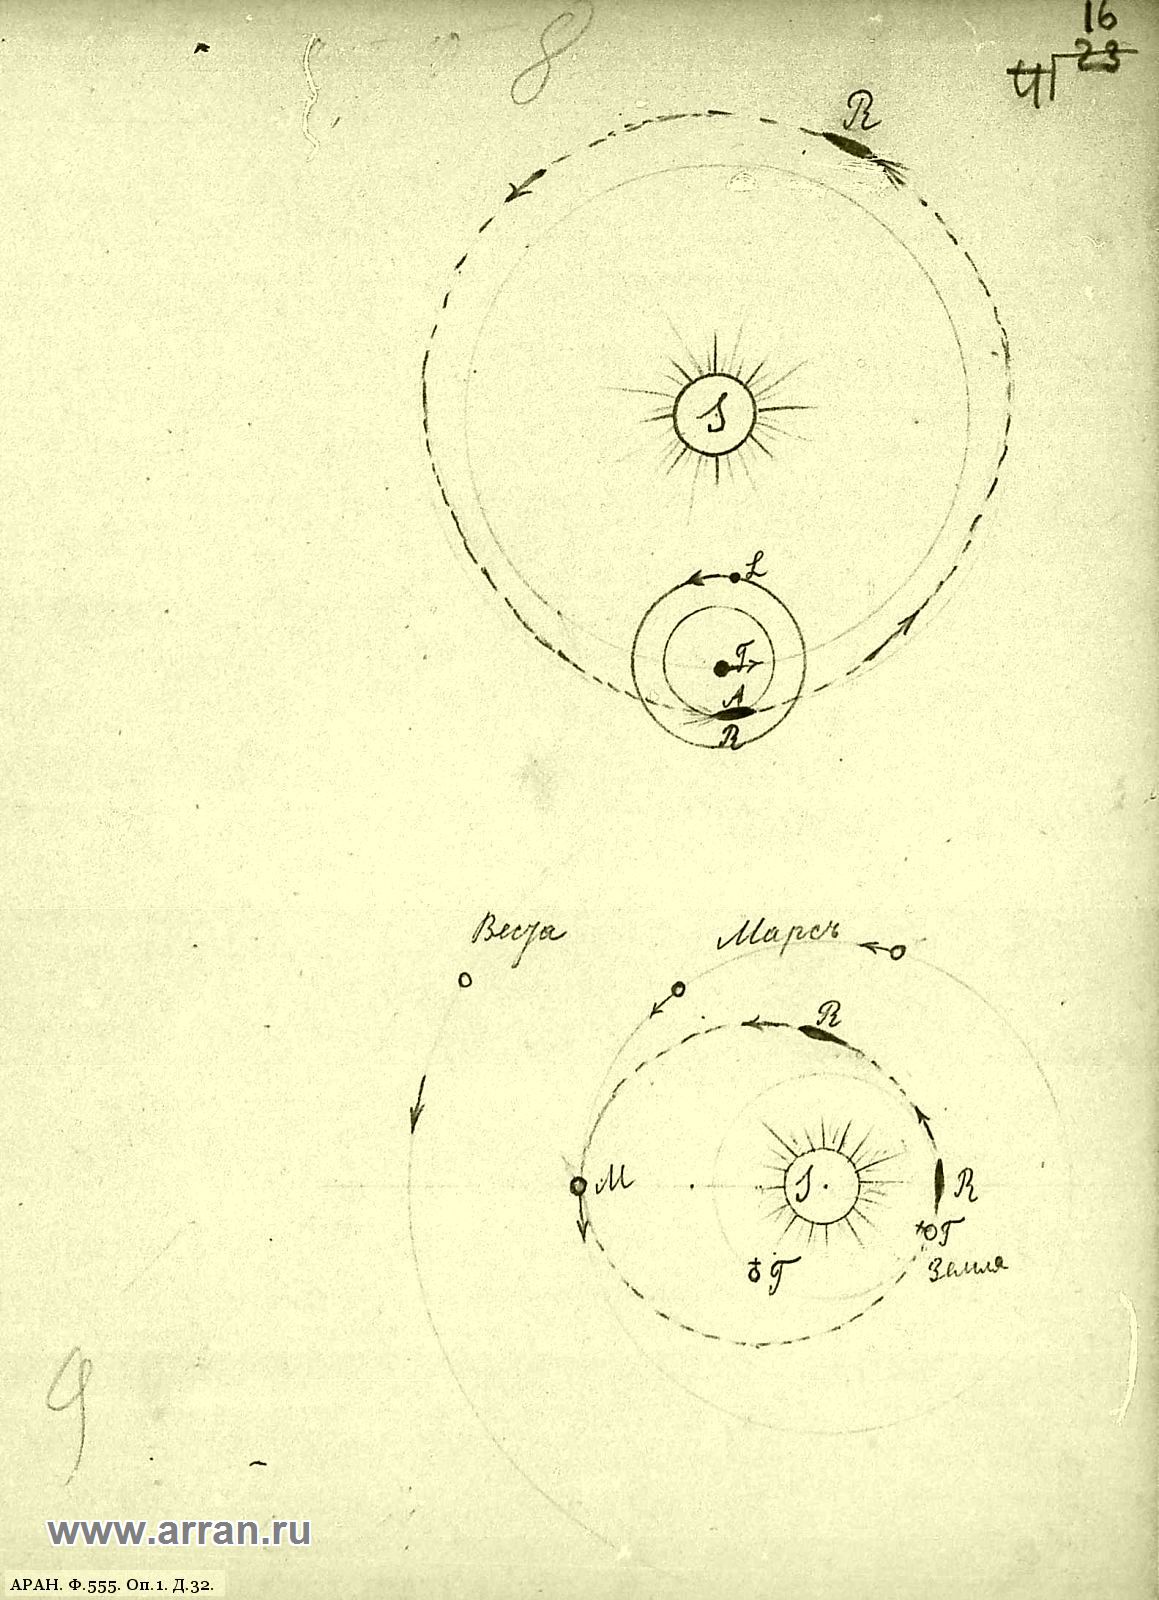 8
16
23
41
R
S
L
T
A
R
Веста
Марсъ
R
М
S
R
T
T
Земля
9
www.arran.ru
АРАН. Ф.555. Оп.1. Д.32.